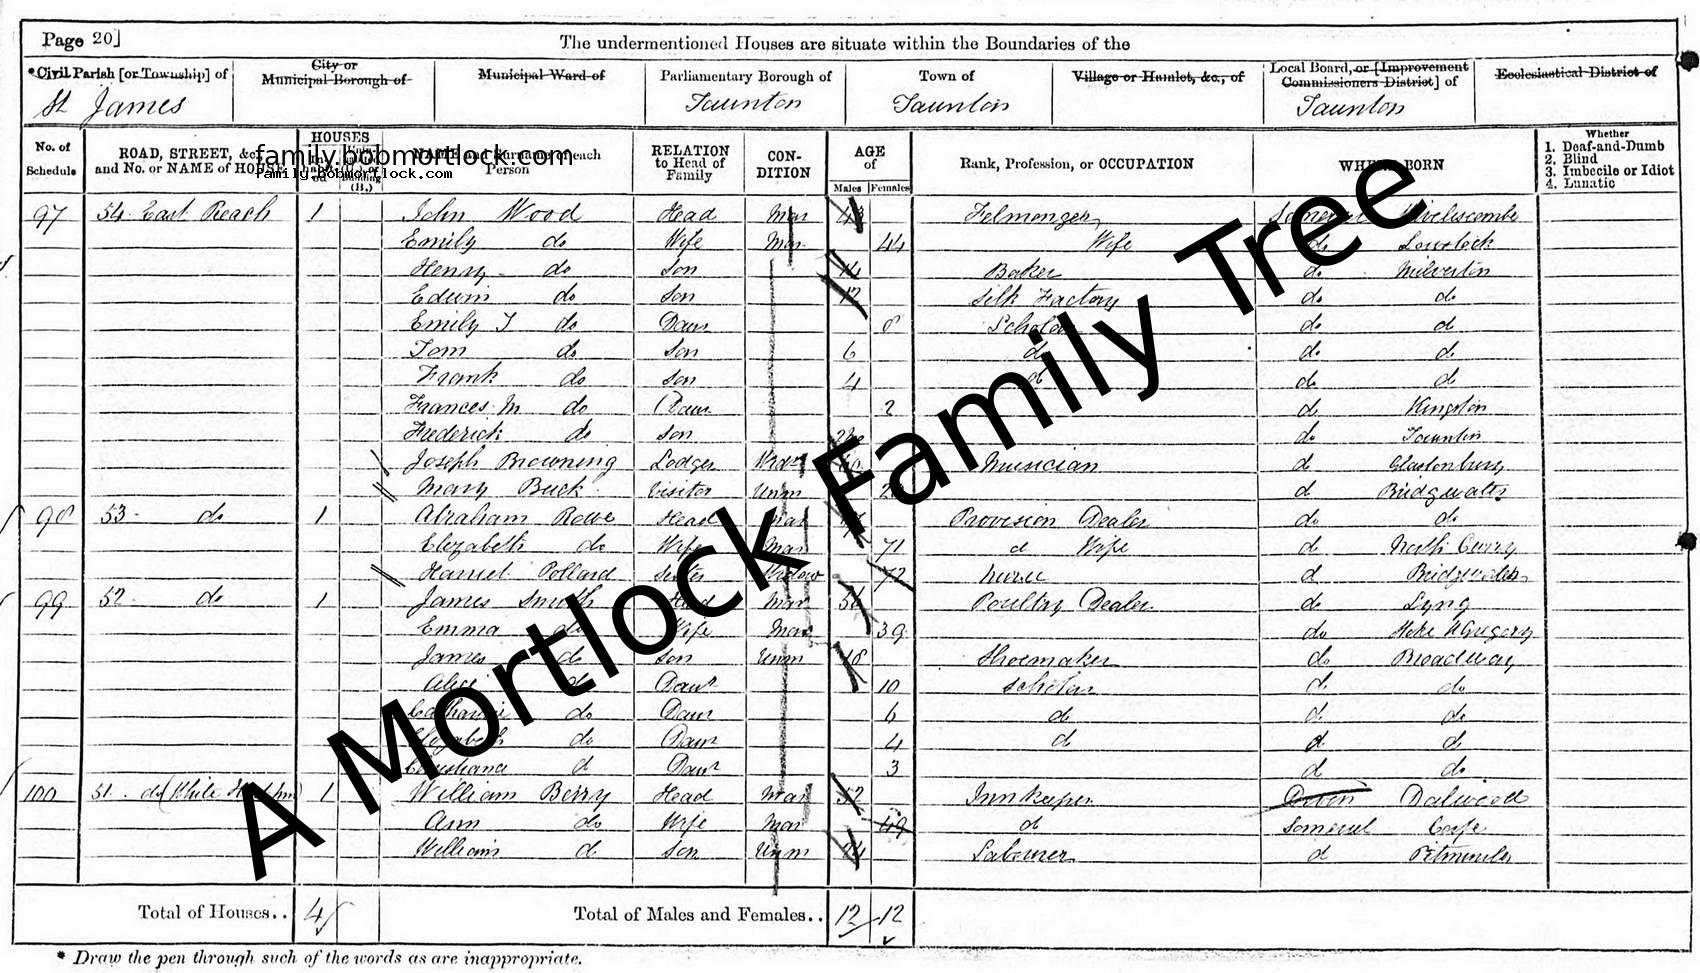 Page 20]
The undermentioned Houses are situate within the Boundaries of the
*Civil Parish [or Township] of
City or Municipal Borough of
Municipal Ward of
Parliamentary Borough of
Town of
Village or Hamlet, &c., of
Local Board, or [Improvement Commissioners District] of
Ecclesiastical District of
St James
Taunton
Taunton
Taunton
No. of Schedule
ROAD, STREET, &c., and No. or NAME of HOUSE
HOUSES
NAME and Surname of each Person
RELATION to Head of Family
CON-DITION
AGE of
Males Females
Rank, Profession, or OCCUPATION
WHERE BORN
Whether
1. Deaf-and-Dumb
2. Blind
3. Imbecile or Idiot
4. Lunatic
family.bobmortlock.com
family.bobmortlock.com
97 54 East Reach 1 John Wood Head Mar Felmonger Somerset Wiveliscombe
Emily do Wife Mar 44 Wife do
Henry do Son Baker do Milverton
Edwin do Son 12 Silk Factory do do
Emily J do Daur 8 Scholar do d
Tom do Son 6 do do d
Frank do Son 4 d do d
Frances M do Daur 2 do Kingston
Frederick do Son do Taunton
Joseph Browning Lodger Widr Musician d Glastonbury
Mary Buck Visitor Unm d Bridgwater
98 53 do 1 Abraham Rowe Head Mar Provision Dealer do do
Elizabeth do Wife Mar 71 d Wife d North Curry
Harriet Pollard Sister Widow 72 Nurse d Bridgwater
99 52 do 1 James Smith Head Mar 56 Poultry Dealer do Lyng
Emma do Wife Mar 39 do Stoke St Gregory
James do Son Unm 18 Shoemaker do Broadway
Alice do Daur 10 Scholar d do
Catharine do Daur 6 d d do
Elizabeth do Daur 4 d d d
Christiana d Daur 3 d do
100 51 do (White Hart Inn) 1 William Berry Head Mar 52 Innkeeper Devon Dalwood
Ann do Wife Mar 49 d Somerset Corfe
William d Son Unm Labourer d Pitminster
Total of Houses.. 4
Total of Males and Females.. 12 12
* Draw the pen through such of the words as are inappropriate.
A Mortlock Family Tree